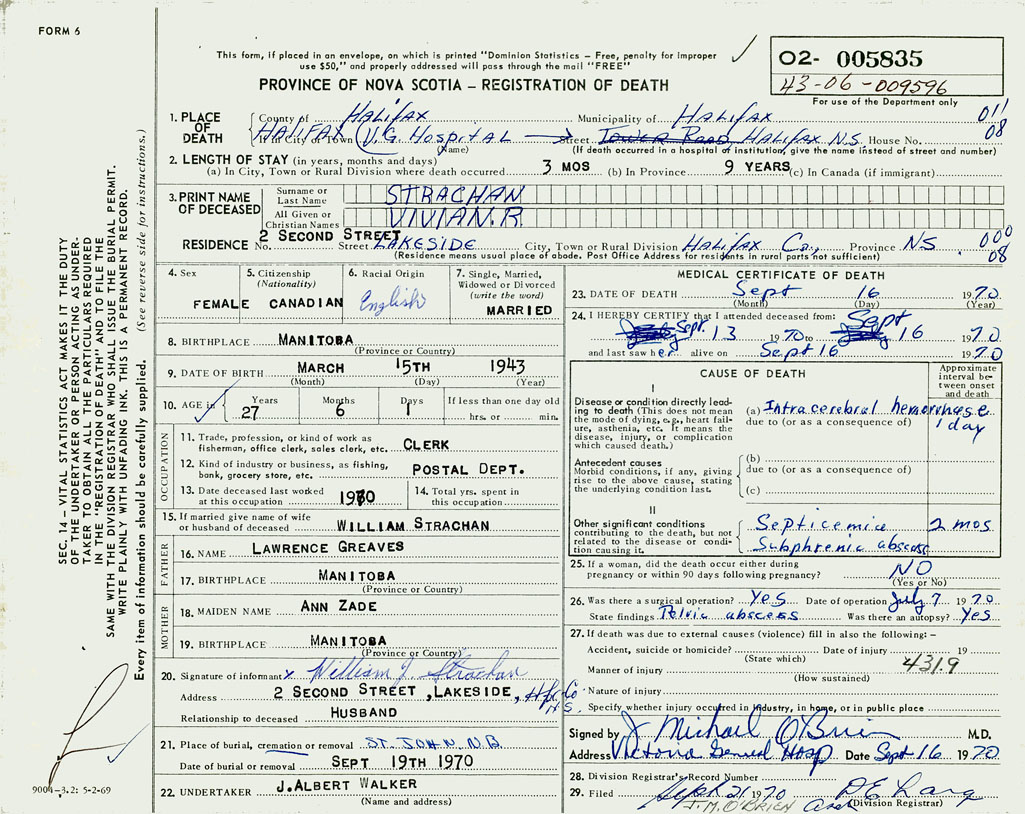 FORM 6
This form, if placed in an envelope, on which is printed "Dominion Statistics — Free, penalty for improper
use $50," and properly addressed will pass through the mail "FREE"
PROVINCE OF NOVA SCOTIA – REGISTRATION OF DEATH
O2- 005835
43-06-009596
For use of the Department only
1. PLACE OF DEATH
County of Halifax Municipality of Halifax 011
If in City or Town HALIFAX (V.G. Hospital (Name) Street Tower Road, Halifax N.S. House No. 08
(If death occurred in a hospital or institution, give the name instead of street and number)
2. LENGTH OF STAY (in years, months and days)
(a) In City, Town or Rural Division where death occurred 3 MOS (b) In Province 9 YEARS (c) In Canada (if immigrant)
3. PRINT NAME OF DECEASED
Surname or Last Name STRACHAN
All Given or Christian Names VIVIAN.R
RESIDENCE No. 2 SECOND STREET Street LAKESIDE City, Town or Rural Division Halifax Co., Province NS 000
(Residence means usual place of abode. Post Office Address for residents in rural parts not sufficient) 08
4. Sex FEMALE
5. Citizenship (Nationality) CANADIAN
6. Racial Origin English
7. Single, Married, Widowed or Divorced (write the word) MARRIED
8. BIRTHPLACE MANITOBA
(Province or Country)
9. DATE OF BIRTH MARCH 15TH 1943
(Month) (Day) (Year)
10. AGE in Years 27 Months 6 Days 1 If less than one day old hrs. or min.
OCCUPATION
11. Trade, profession, or kind of work as fisherman, office clerk, sales clerk, etc. CLERK
12. Kind of industry or business, as fishing, bank, grocery store, etc. POSTAL DEPT.
13. Date deceased last worked at this occupation 1970
14. Total yrs. spent in this occupation
15. If married give name of wife or husband of deceased WILLIAM STRACHAN
FATHER
16. NAME LAWRENCE GREAVES
17. BIRTHPLACE MANITOBA
(Province or Country)
MOTHER
18. MAIDEN NAME ANN ZADE
19. BIRTHPLACE MANITOBA
(Province or Country)
20. Signature of informant x William J Strachan
Address 2 SECOND STREET, LAKESIDE, Hfx. Co N.S.
Relationship to deceased HUSBAND
21. Place of burial, cremation or removal ST. JOHN. N.B.
Date of burial or removal SEPT 19TH 1970
22. UNDERTAKER J.ALBERT WALKER
(Name and address)
MEDICAL CERTIFICATE OF DEATH
23. DATE OF DEATH Sept 16 1970
(Month) (Day) (Year)
24. I HEREBY CERTIFY that I attended deceased from: Sept
Sept. 13 1970 to 16 1970
and last saw her alive on Sept 16 1970
CAUSE OF DEATH
Approximate interval between onset and death
I
Disease or condition directly leading to death (This does not mean the mode of dying, e.g., heart failure, asthenia, etc. It means the disease, injury, or complication which caused death.)
(a) Intracerebral hemorrhage 1 day
due to (or as a consequence of)
Antecedent causes
Morbid conditions, if any, giving rise to the above cause, stating the underlying condition last.
(b)
due to (or as a consequence of)
(c)
II
Other significant conditions contributing to the death, but not related to the disease or condition causing it.
Septicemia 2 mos
Subphrenic abscess
25. If a woman, did the death occur either during pregnancy or within 90 days following pregnancy? NO
(Yes or No)
26. Was there a surgical operation? Yes Date of operation July 7 1970
State findings Pelvic abscess Was there an autopsy? Yes
27. If death was due to external causes (violence) fill in also the following: –
Accident, suicide or homicide? Date of injury 19
(State which)
Manner of injury 4319
(How sustained)
Nature of injury
Specify whether injury occurred in Industry, in home, or in public place
Signed by J Michael O'Brien M.D.
Address Victoria General Hosp Date Sept 16 1970
28. Division Registrar's Record Number
29. Filed Sept 21 1970
(Division Registrar)
J.M. O'BRIEN
SEC. 14 – VITAL STATISTICS ACT MAKES IT THE DUTY
OF THE UNDERTAKER OR PERSON ACTING AS UNDER-
TAKER TO OBTAIN ALL THE PARTICULARS REQUIRED
IN THE "REGISTRATION OF DEATH" AND TO FILE THE
SAME WITH THE DIVISION REGISTRAR WHO SHALL ISSUE THE BURIAL PERMIT.
WRITE PLAINLY WITH UNFADING INK. THIS IS A PERMANENT RECORD.
Every item of information should be carefully supplied. (See reverse side for instructions.)
9004-3.2: 5-2-69